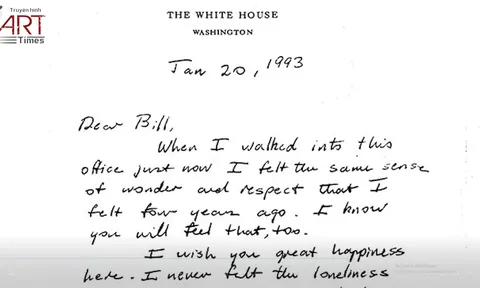 Truyền hình
ART
Times
THE WHITE HOUSE
WASHINGTON
Jan 20, 1993
Dear Bill,
When I walked into this
office just now I felt the same sense
of wonder and respect that I
felt four years ago. I know
you will feel that, too.
I wish you great happiness
here. I never felt the loneliness